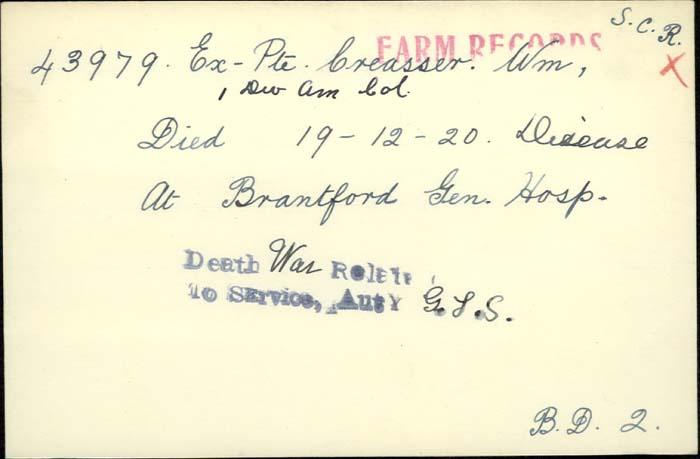 S.C.R.
FARM RECORDS
43979. Ex-Pte. Creasser. Wm,
1 Div Am Col.
Died 19-12-20. Disease
At Brantford Gen. Hosp.
Death Was Relat
To Service, Auty G.S.
B.D. 2.